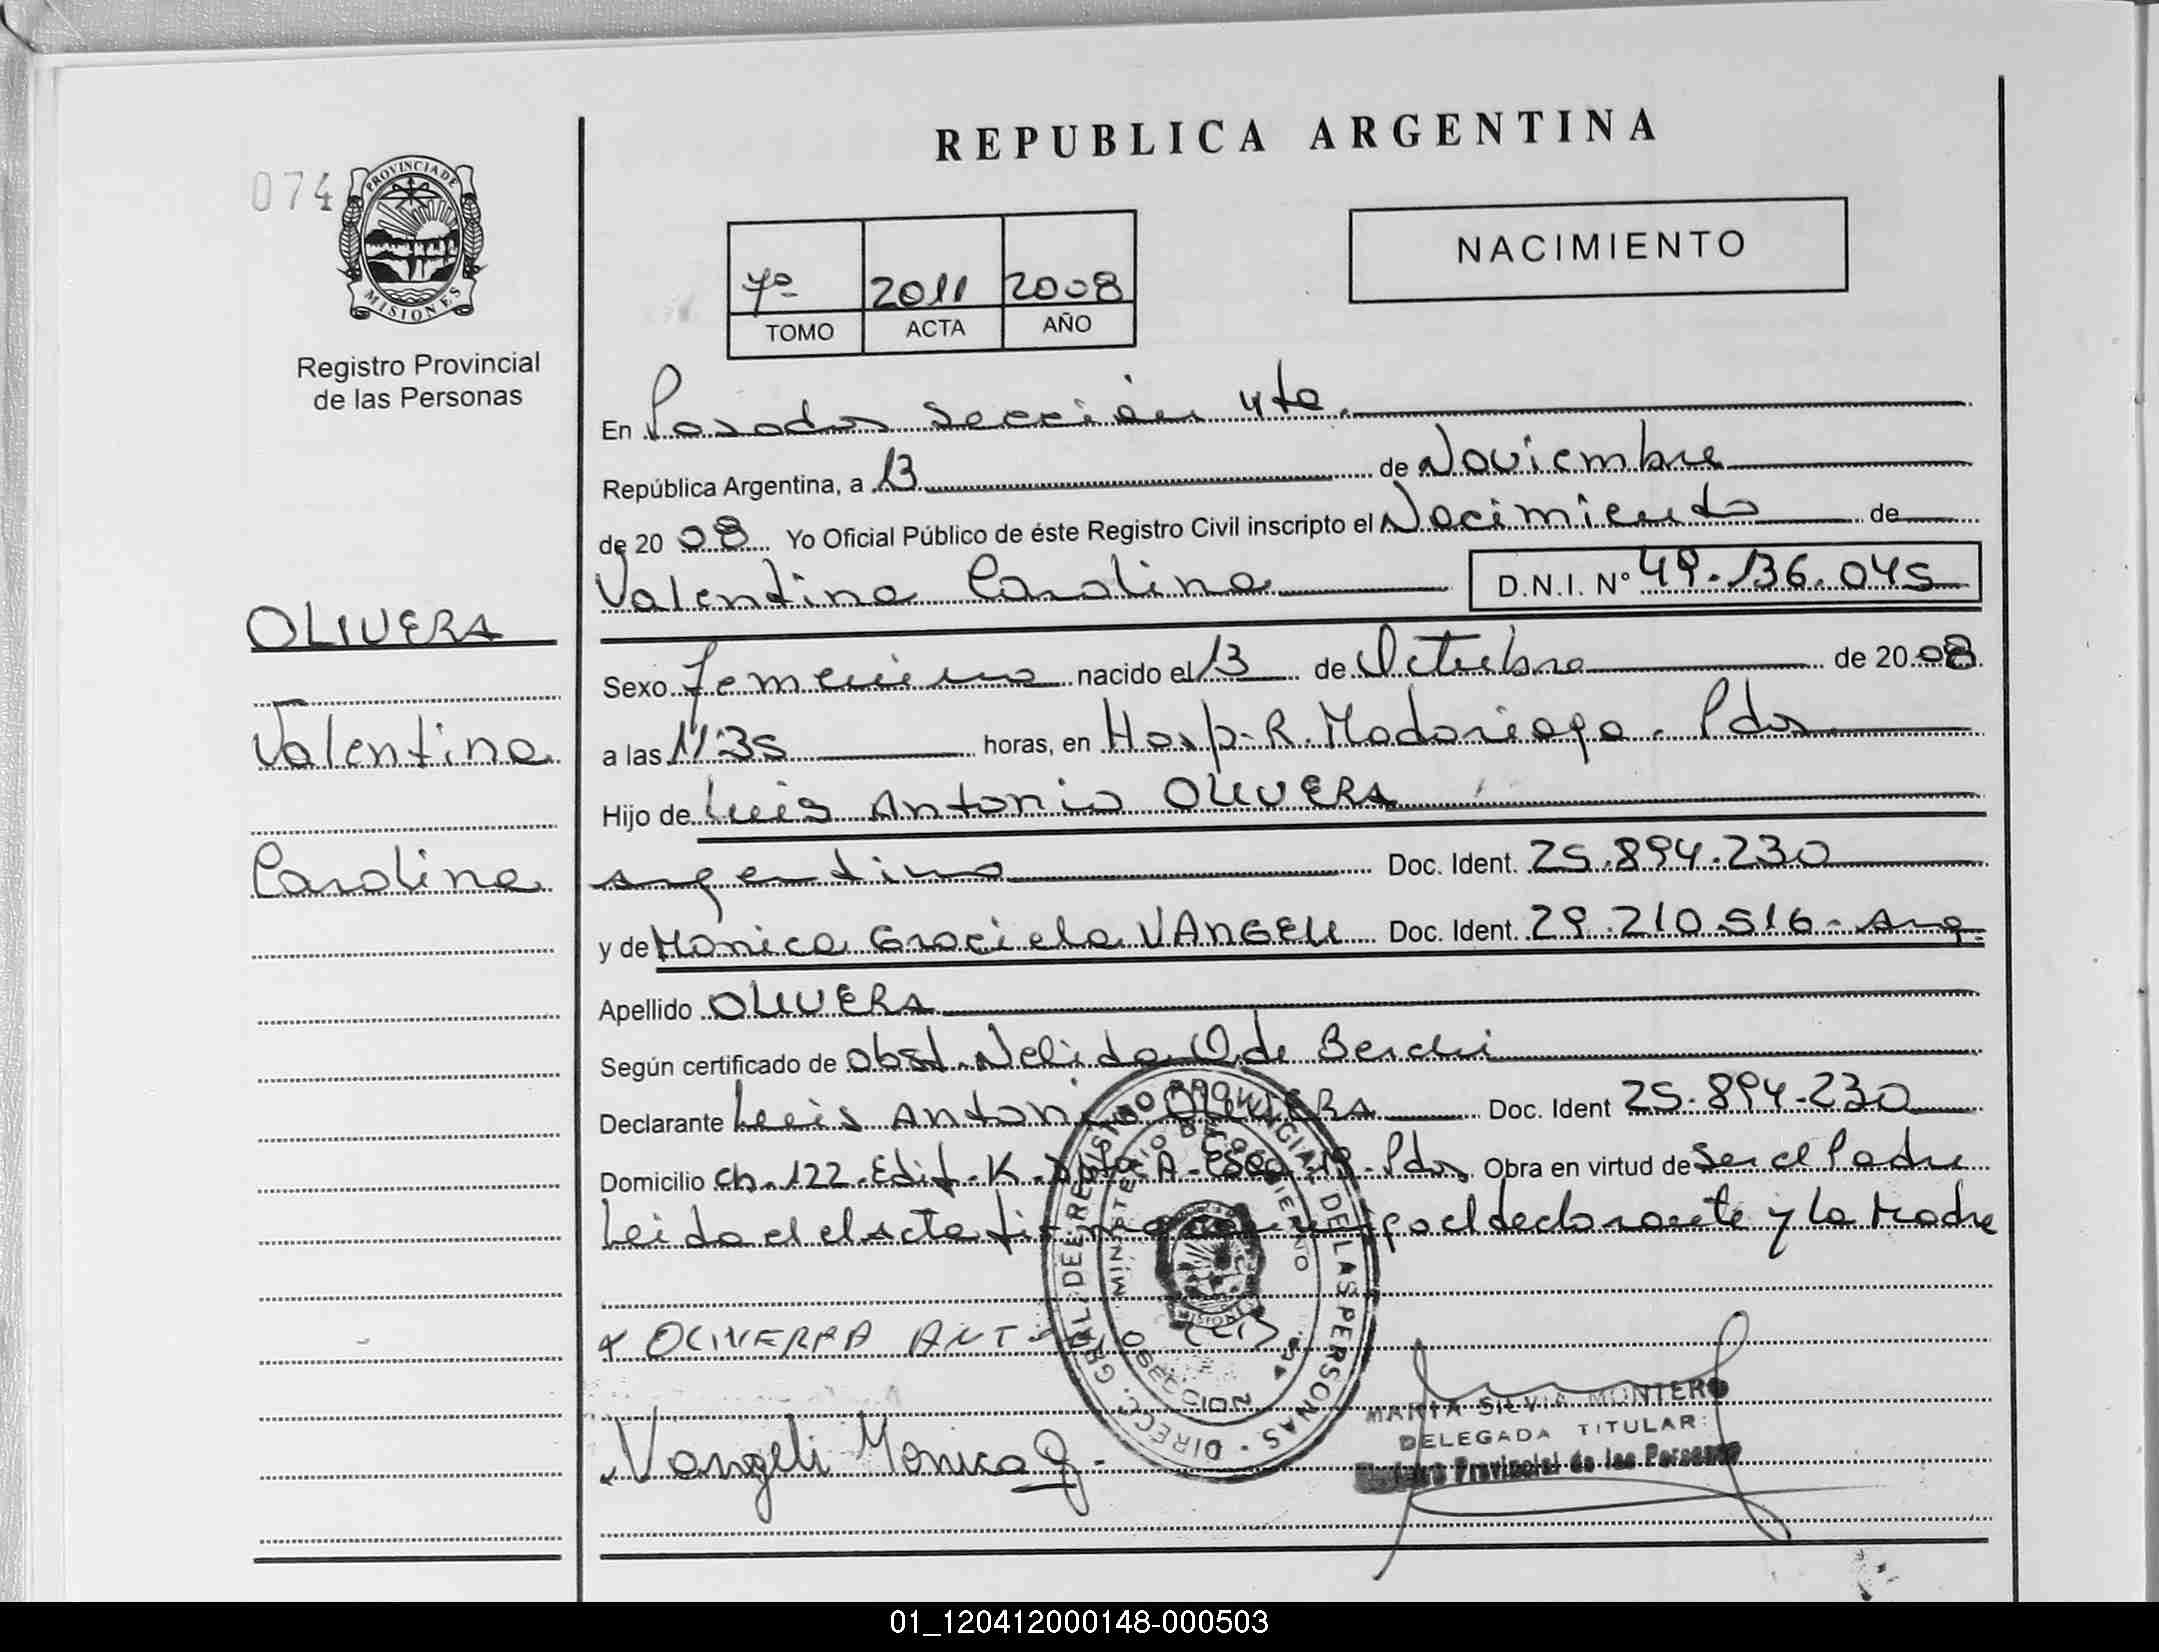 REPUBLICA ARGENTINA
074
PROVINCIA DE
MISIONES
Registro Provincial
de las Personas
7º 2011 2008
TOMO ACTA AÑO
NACIMIENTO
En Posadas sección 4ta.
República Argentina, a 13 de Noviembre
de 2008 Yo Oficial Público de éste Registro Civil inscripto el Nacimiento de
Valentina Carolina D.N.I. Nº 49.136.045
OLIVERA
Valentina
Carolina
Sexo femenino nacido el 13 de Octubre de 2008
a las 11:35 horas, en Hosp. R. Madariaga. Pdas
Hijo de Luis Antonio OLIVERA
argentino Doc. Ident. 25.894.230
y de Monica Graciela VANGELI Doc. Ident. 29.210.516 - Arg.
Apellido OLIVERA
Según certificado de obst. Nelida O. de
Declarante Luis Antonio OLIVERA Doc. Ident 25.894.230
Domicilio ch. 122. Edif. K. Dpto A - Esca. 19 - Pdas Obra en virtud de Ser el Padre
Leida el el acta firma conmigo el declarante y la Madre
OLIVERRA ANT LUIS
Vangeli Monica G.
DIRECC. GRAL. DE REGISTRO PROVINCIAL DE LAS PERSONAS
MINISTERIO DE GOBIERNO
SECCION
MISIONES
MARIA SILVIA MONTERO
DELEGADA TITULAR
Registro Provincial de las Personas
01_120412000148-000503